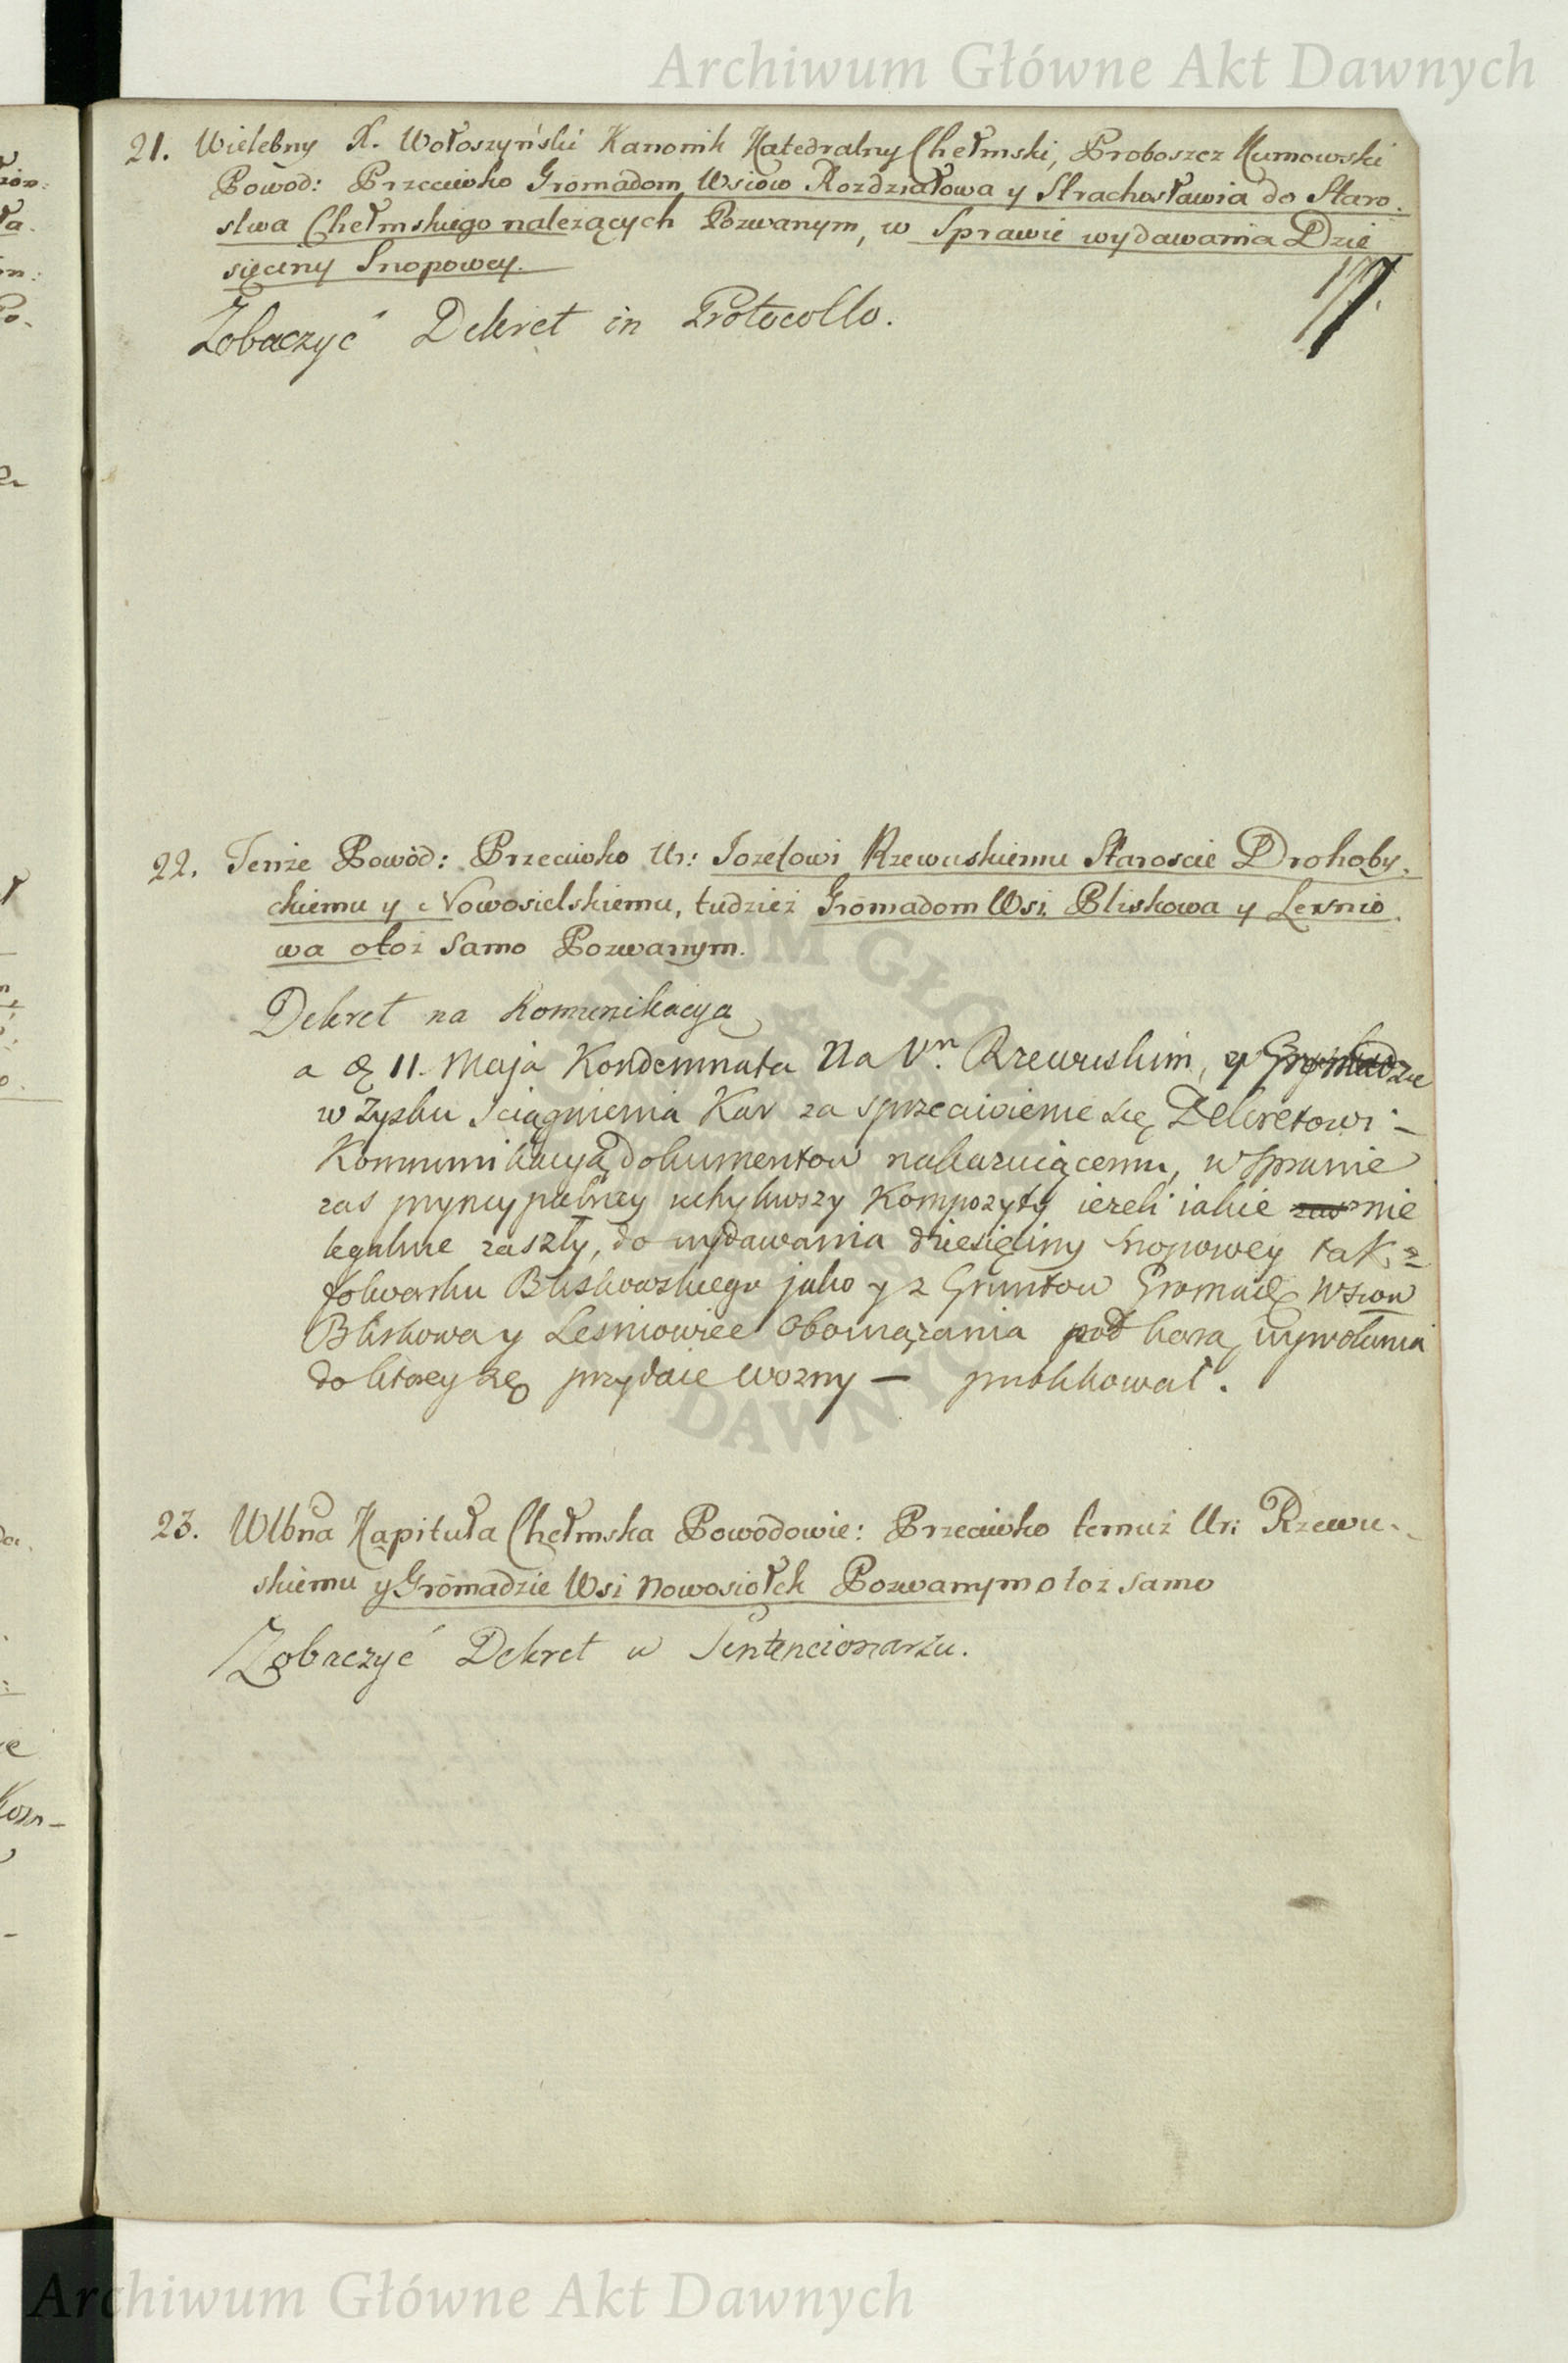 Archiwum Główne Akt Dawnych
21. Wielebny X. Wołoszyński Kanonik Katedralny Chełmski, Proboszcz Kumowski
Powod: Przeciwko Gromadom Wsiow Rozdziałowa y Strachosławia do Staro.
stwa Chełmskiego nalezących Pozwanym, w Sprawie wydawania Dzie
sięciny Snopowey.
17.
Zobaczyć Dekret in Protocollo.
22. Tenże Powód: Przeciwko Ur: Jozefowi Rzewuskiemu Staroscie Drohoby.
ckiemu y Nowosielskiemu, tudzież Gromadom Wsi Pliskowa y Lesnio.
wa otoż samo Pozwanym.
Dekret na Komunikacyą
a 11. Maja Kondemnata Na Rzewuskim, y Gromadzie
w Zysku sciągnienia Kar za sprzeciwienie się Dekretowi –
Kommunikacyą dokumentow nakazuiącemu, w sprawie
zas pryncypalney uchyliwszy Kompozyty iezeli iakie zas nie
legalnie zaszły, do wydawania dziesięciny snopowey tak z
folwarku Bliskowskiego jako y z Gruntow Gromad Wsiow
Bliskowa y Lesniowiec obowiązania pod karą wywołania
do ktorey się przydaie wozny — publikował.
23. Wlbna Kapituła Chełmska Powodowie: Przeciwko temuż Ur: Rzewu-
skiemu y Gromadzie Wsi Nowosiołek Pozwanym otoż samo
Zobaczyć Dekret w Sentencionarzu.
Archiwum Główne Akt Dawnych